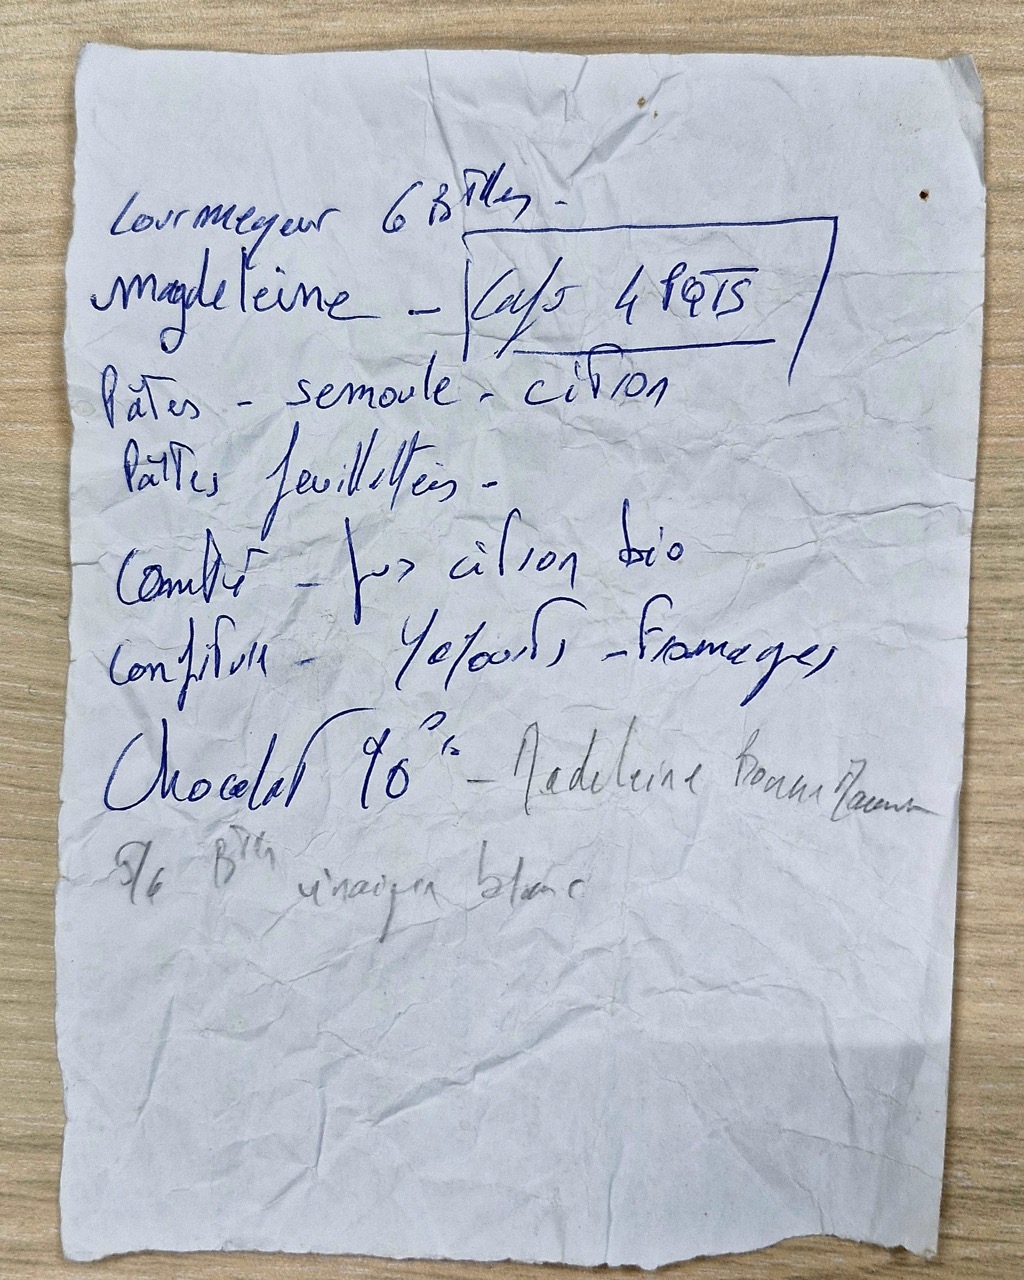 Courmayeur 6 Btlles -
Magdeleine - Café 4 PQTS
Pâtes - semoule - citron
Pâttes feuillettées -
Comté - Jus citron bio
Confiture - Yaourts - Fromages
Chocolat 90% - Madeleine Bonne Maman
5/6 Btlles vinaigre blanc